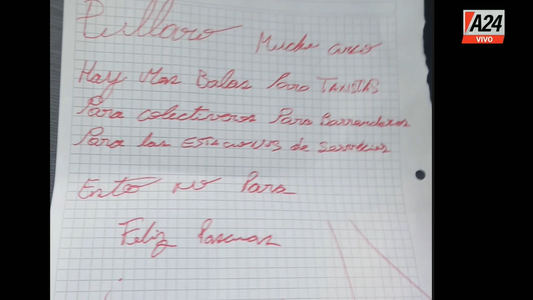 Pullaro
Mucho circo
Hay Mas Balas Para TAXISTAS
Para colectiveros Para Barrenderos
Para las ESTACIONES de Servicios
Esto no Para
Feliz Pascuas
A24
VIVO